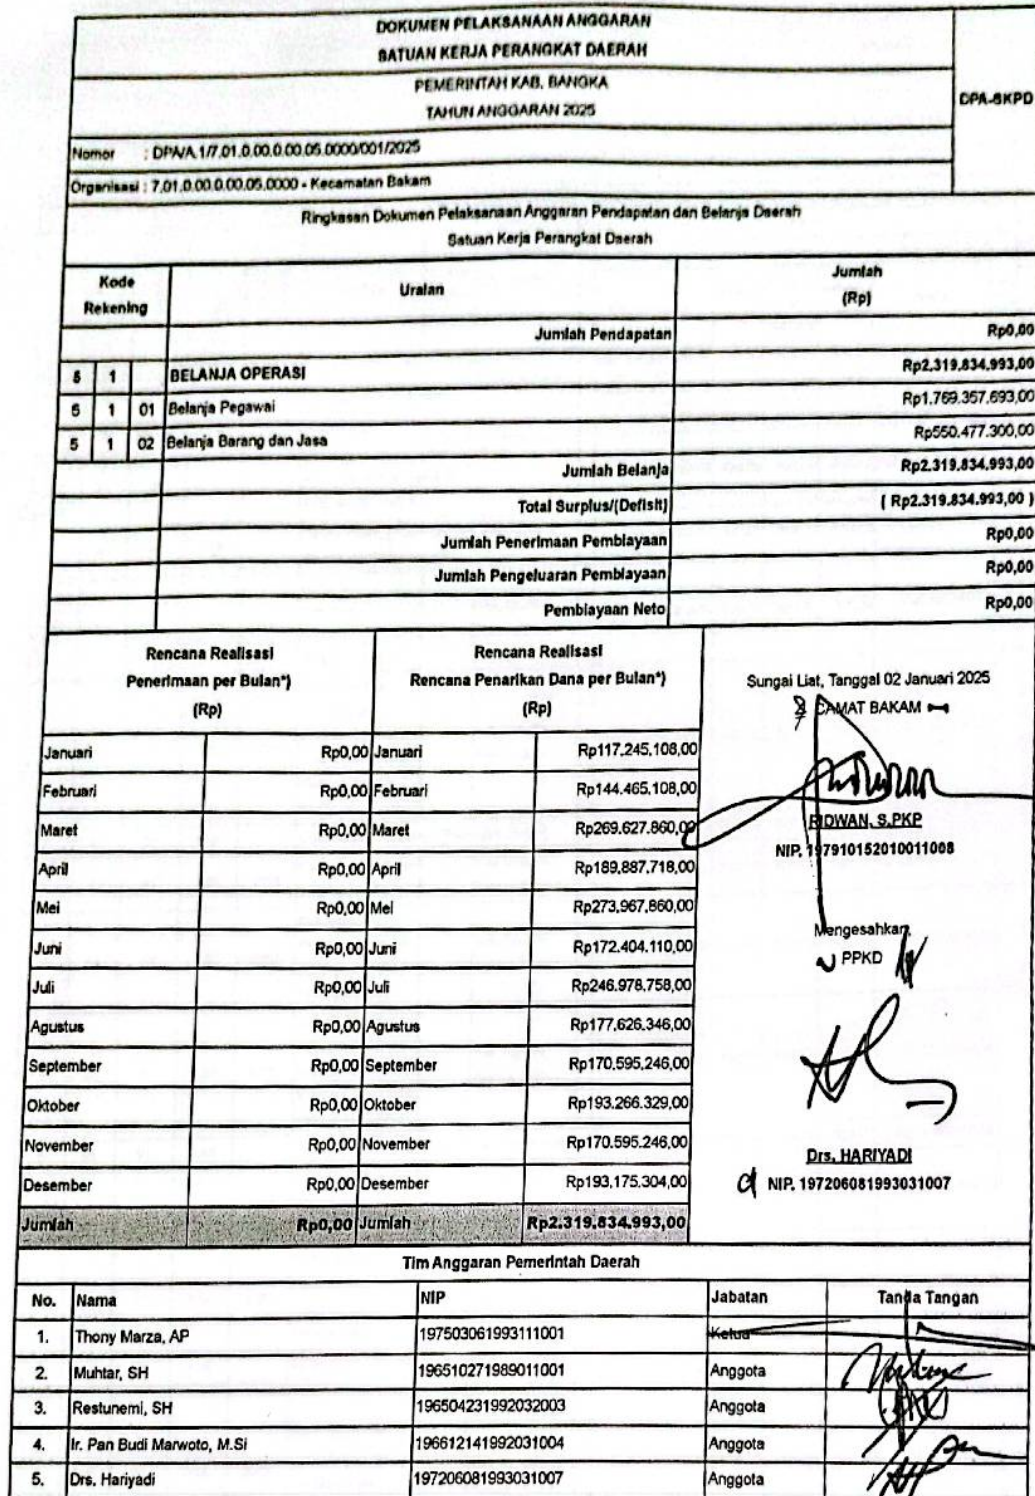 DOKUMEN PELAKSANAAN ANGGARAN
SATUAN KERJA PERANGKAT DAERAH
DPA-SKPD
PEMERINTAH KAB. BANGKA
TAHUN ANGGARAN 2025
Nomor : DPA/A.1/7.01.0.00.0.00.05.0000/001/2025
Organisasi : 7.01.0.00.0.00.05.0000 - Kecamatan Bakam
Ringkasan Dokumen Pelaksanaan Anggaran Pendapatan dan Belanja Daerah
Satuan Kerja Perangkat Daerah
Kode Rekening Uraian Jumlah (Rp)
Jumlah Pendapatan Rp0,00
5 1 BELANJA OPERASI Rp2.319.834.993,00
5 1 01 Belanja Pegawai Rp1.769.357.693,00
5 1 02 Belanja Barang dan Jasa Rp550.477.300,00
Jumlah Belanja Rp2.319.834.993,00
Total Surplus/(Defisit) ( Rp2.319.834.993,00 )
Jumlah Penerimaan Pembiayaan Rp0,00
Jumlah Pengeluaran Pembiayaan Rp0,00
Pembiayaan Neto Rp0,00
Rencana Realisasi
Penerimaan per Bulan*)
(Rp)
Rencana Realisasi
Rencana Penarikan Dana per Bulan*)
(Rp)
Januari Rp0,00 Januari Rp117.245.108,00
Februari Rp0,00 Februari Rp144.465.108,00
Maret Rp0,00 Maret Rp269.627.860,00
April Rp0,00 April Rp189.887.718,00
Mei Rp0,00 Mei Rp273.967.860,00
Juni Rp0,00 Juni Rp172.404.110,00
Juli Rp0,00 Juli Rp246.978.758,00
Agustus Rp0,00 Agustus Rp177.626.346,00
September Rp0,00 September Rp170.595.246,00
Oktober Rp0,00 Oktober Rp193.266.329,00
November Rp0,00 November Rp170.595.246,00
Desember Rp0,00 Desember Rp193.175.304,00
Jumlah Rp0,00 Jumlah Rp2.319.834.993,00
Sungai Liat, Tanggal 02 Januari 2025
CAMAT BAKAM
RIDWAN, S.PKP
NIP. 197910152010011008
Mengesahkan,
PPKD
Drs. HARIYADI
NIP. 197206081993031007
Tim Anggaran Pemerintah Daerah
No. Nama NIP Jabatan Tanda Tangan
1. Thony Marza, AP 197503061993111001 Ketua
2. Muhtar, SH 196510271989011001 Anggota
3. Restunemi, SH 196504231992032003 Anggota
4. Ir. Pan Budi Marwoto, M.Si 196612141992031004 Anggota
5. Drs. Hariyadi 197206081993031007 Anggota